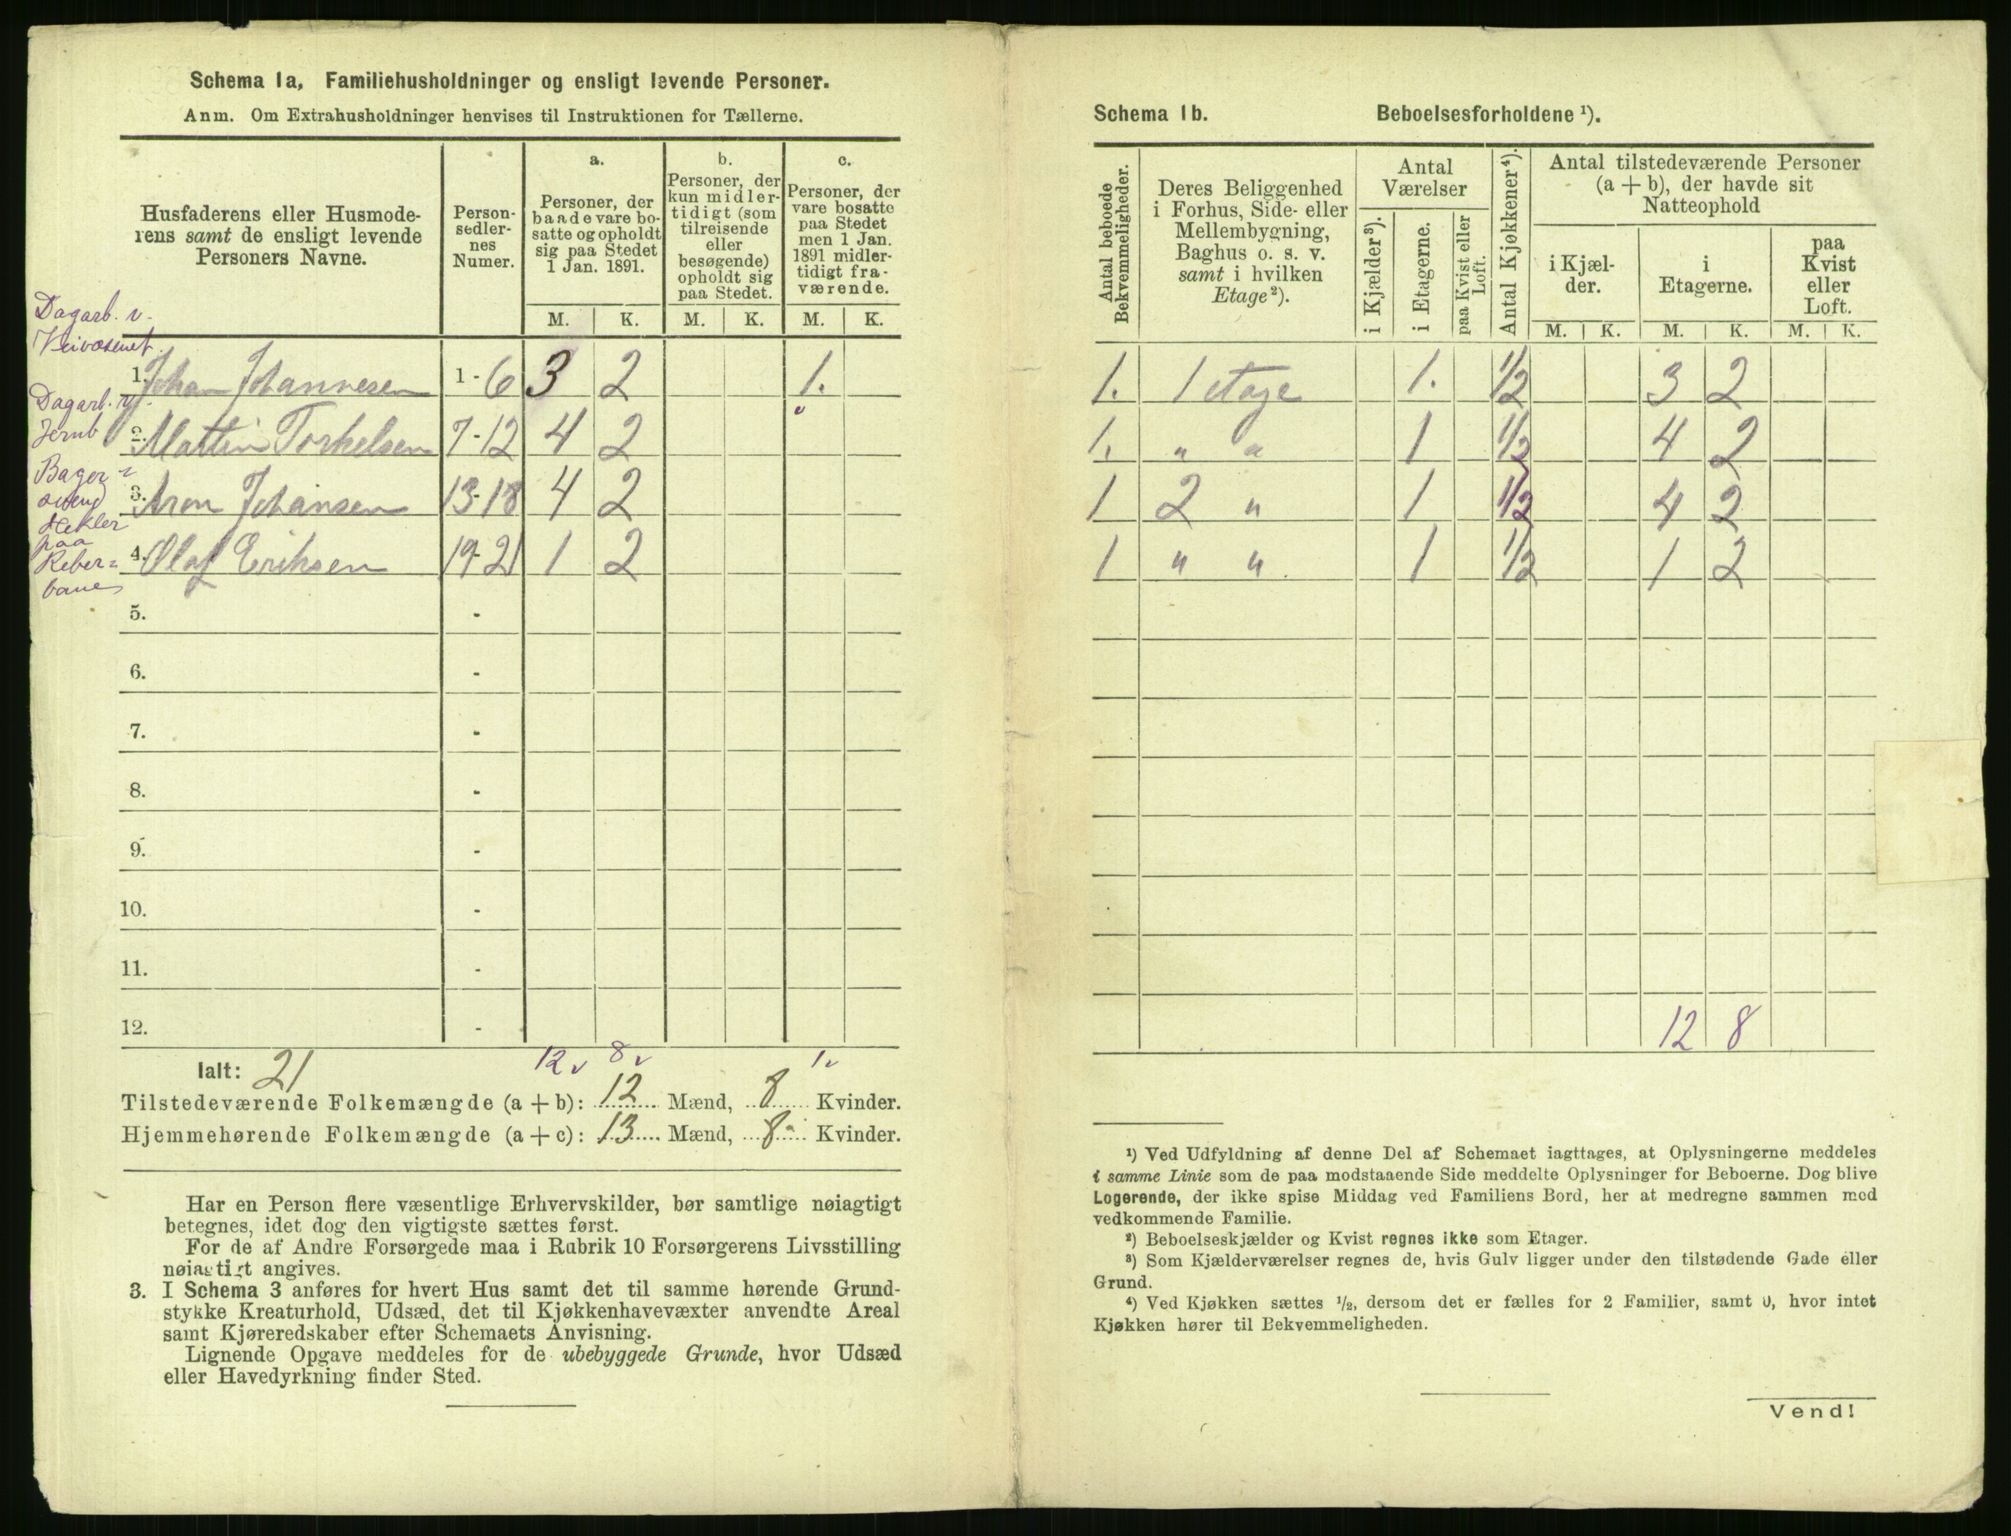 Schema 1a, Familiehusholdninger og ensligt levende Personer.
Anm. Om Extrahusholdninger henvises til Instruktionen for Tællerne.
Husfaderens eller Husmoderens samt de ensligt levende Personers Navne.
Personsedlernes Numer.
a. Personer, der baade vare bosatte og opholdt sig paa Stedet 1 Jan. 1891.
b. Personer, der kun midlertidigt (som tilreisende eller besøgende) opholdt sig paa Stedet.
c. Personer, der vare bosatte paa Stedet men 1 Jan. 1891 midlertidigt fraværende.
M. K. M. K. M. K.
Dagarb. v.
Veivæsenet.
1. Johan Johannesen 1-6 3 2 1.
Dagarb. v.
Jernb
2. Martin Torkelsen 7-12 4 2
Bager
3. Aron Johansen 13-18 4 2
Hekler
paa
Reber=
bane
4. Olaf Eriksen 19-21 1 2
5. -
6. -
7. -
8. -
9. -
10. -
11. -
12. -
12 v 8 v 1 v
Ialt: 21
Tilstedeværende Folkemængde (a + b): 12 Mænd, 8 Kvinder.
Hjemmehørende Folkemængde (a + c): 13 Mænd, 8 Kvinder.
Har en Person flere væsentlige Erhvervskilder, bør samtlige nøiagtigt
betegnes, idet dog den vigtigste sættes først.
For de af Andre Forsørgede maa i Rubrik 10 Forsørgerens Livsstilling
nøiagtigt angives.
3. I Schema 3 anføres for hvert Hus samt det til samme hørende Grund-
stykke Kreaturhold, Udsæd, det til Kjøkkenhavevæxter anvendte Areal
samt Kjøreredskaber efter Schemaets Anvisning.
Lignende Opgave meddeles for de ubebyggede Grunde, hvor Udsæd
eller Havedyrkning finder Sted.
Schema 1b. Beboelsesforholdene ¹).
Antal beboede Bekvemmeligheder.
Deres Beliggenhed i Forhus, Side- eller Mellembygning, Baghus o. s. v. samt i hvilken Etage ²).
Antal Værelser
i Kjælder ³).
i Etagerne.
paa Kvist eller Loft.
Antal Kjøkkener ⁴).
Antal tilstedeværende Personer (a + b), der havde sit Natteophold
i Kjælder.
i Etagerne.
paa Kvist eller Loft.
M. K. M. K. M. K.
1. 1 etage 1. 1/2 3 2
1. " " 1 1/2 4 2
1 2 " 1 1/2 4 2
1 " " 1 1/2 1 2
12 8
¹) Ved Udfyldning af denne Del af Schemaet iagttages, at Oplysningerne meddeles
i samme Linie som de paa modstaaende Side meddelte Oplysninger for Beboerne. Dog blive
Logerende, der ikke spise Middag ved Familiens Bord, her at medregne sammen med
vedkommende Familie.
²) Beboelseskjælder og Kvist regnes ikke som Etager.
³) Som Kjælderværelser regnes de, hvis Gulv ligger under den tilstødende Gade eller
Grund.
⁴) Ved Kjøkken sættes ¹/₂, dersom det er fælles for 2 Familier, samt 0, hvor intet
Kjøkken hører til Bekvemmeligheden.
Vend!